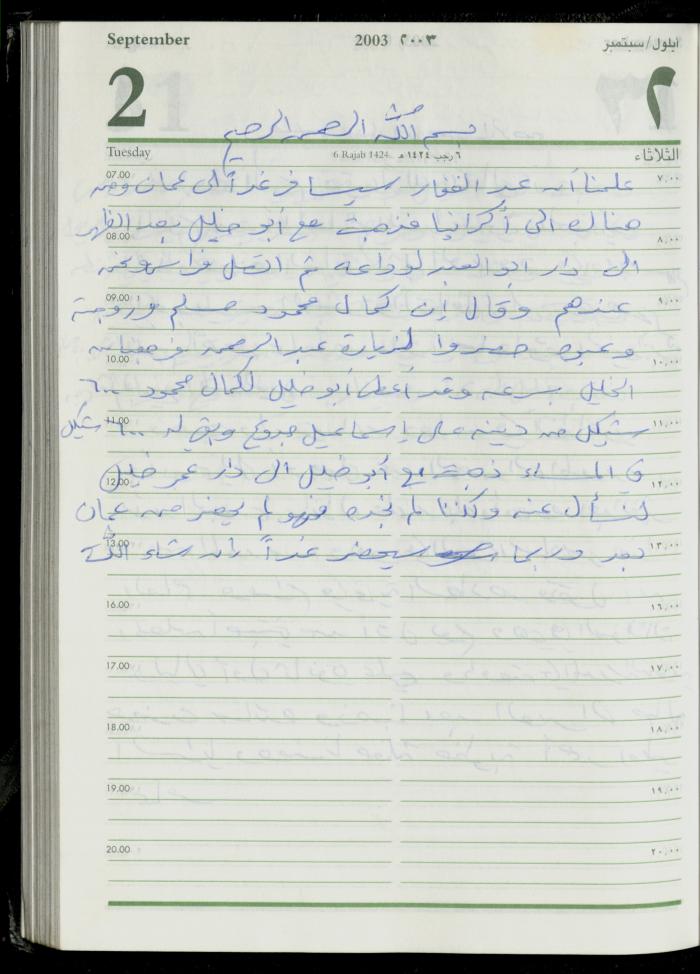 September 2003 ٢٠٠٣ ايلول/سبتمبر
2 ٢
بسم الله الرحمن الرحيم
Tuesday 6 Rajab 1424 ٦ رجب ١٤٢٤ هـ الثلاثاء
07.00 ٧,٠٠
علمنا أن عبد الغفار سيسافر غداً الى عمان ومن
هناك الى أكرانيا فذهبت مع أبو خليل بعد الظهر
08.00 ٨,٠٠
الى دار ابو العبد لوداعه ثم اتصل فراس ونحن
09.00 ٩,٠٠
عندهم وقال إن كمال محمود مسلم وزوجته
حضروا لزيارة عبد الرحمن
10.00 ١٠,٠٠
الخليل بسرعه وقد أعطى أبو خليل لكمال محمود ٦٠٠
11.00 ١١,٠٠
شيكل من دينه على إسماعيل وبقي له ٦٠٠ شيكل
في المساء ذهبت مع أبو خليل الى دار عمر خليل
12.00 ١٢,٠٠
لنسأل عنه ولكننا لم نجده فهو لم يحضر من عمان
13.00 ١٣,٠٠
بعد وربما سيحضر غداً إن شاء الله
16.00 ١٦,٠٠
17.00 ١٧,٠٠
18.00 ١٨,٠٠
19.00 ١٩,٠٠
20.00 ٢٠,٠٠